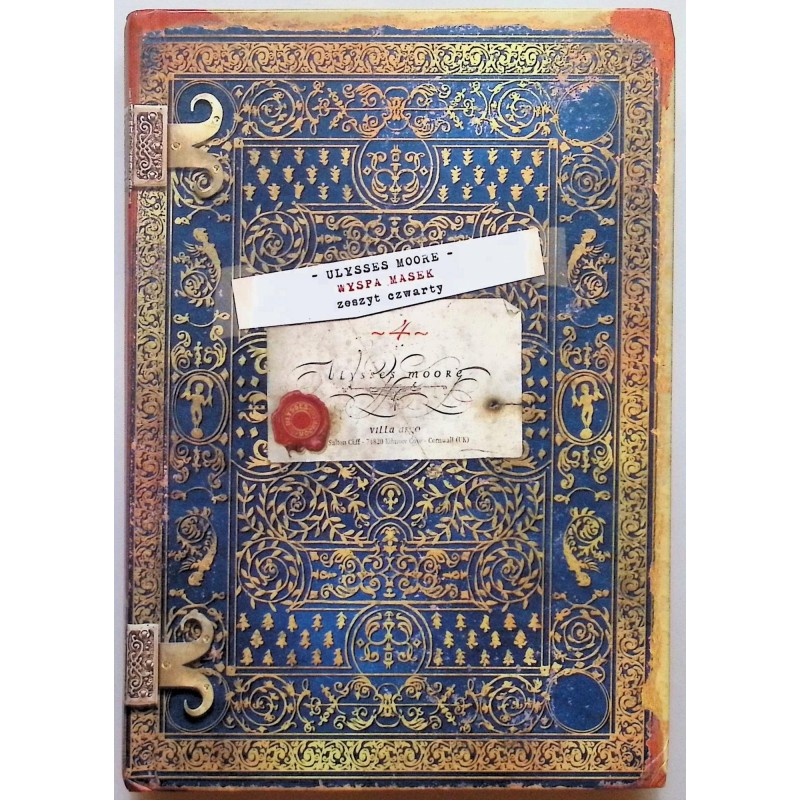 - ULYSSES MOORE -
WYSPA MASEK
zeszyt czwarty
~4~
ULYSSES MOORE
villa argo
Cliff - 74820 Kilmore Cove - Cornwall (UK)